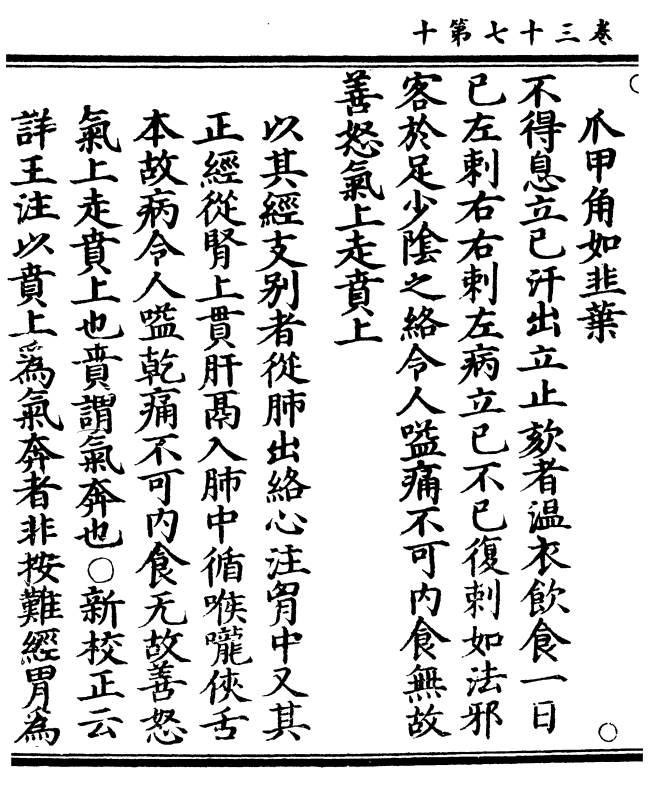 卷三十七第十
爪甲角如韭葉
不得息立已汗出立止欬者温衣飲食一日
已左刺右右刺左病立已不已復刺如法邪
客於足少隂之絡令人嗌痛不可内食無故
善怒氣上走賁上
以其經支别者從肺出絡心注胷中又其
正經從腎上貫肝鬲入肺中循喉嚨俠舌
本故病令人嗌乾痛不可内食无故善怒
氣上走賁上也賁謂氣奔也○新校正云
詳王注以賁上爲氣奔者非按難經胃爲